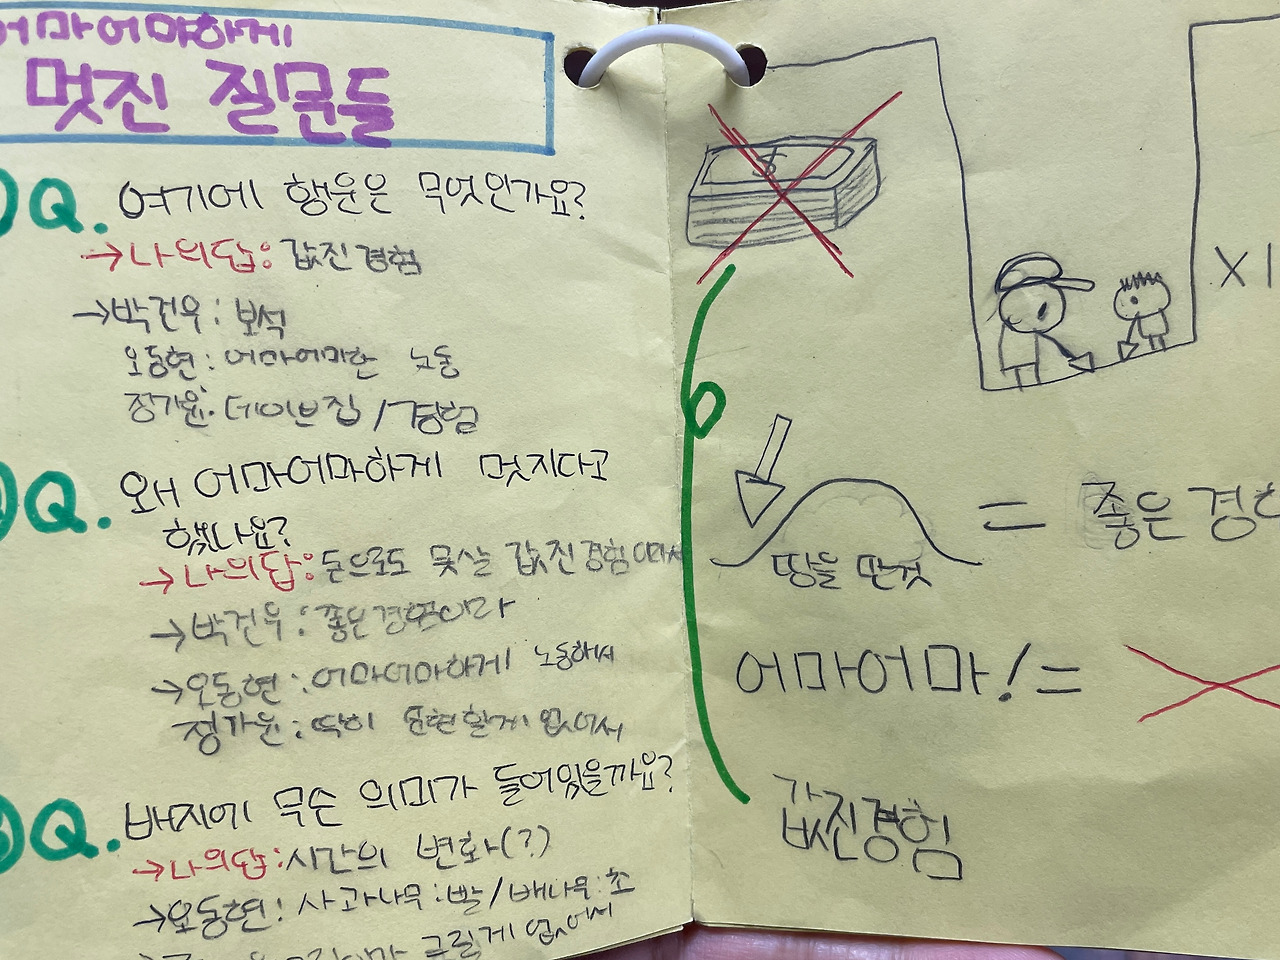 어마어마하게
멋진 질문들
Q. 여기에 행운은 무엇인가요?
→나의답: 값진경험
→박건우: 보석
오동현: 어마어마한 노동
정가윤: 데이브집/경험
Q. 왜 어마어마하게 멋지다고
했나요?
→나의답: 돈으로도 못살 값진경험이라서
→박건우: 좋은경험이라
→오동현: 어마어마하게 노동해서
정가윤: 딱히 표현할게 없어서
Q. 배지에 무슨 의미가 들어있을까요?
→나의답: 시간의 변화(?)
→오동현: 사과나무:빨/배나무:초
그릴게 없어서
$
X 1
땅을 판것
= 좋은경
어마어마! =
값진경험